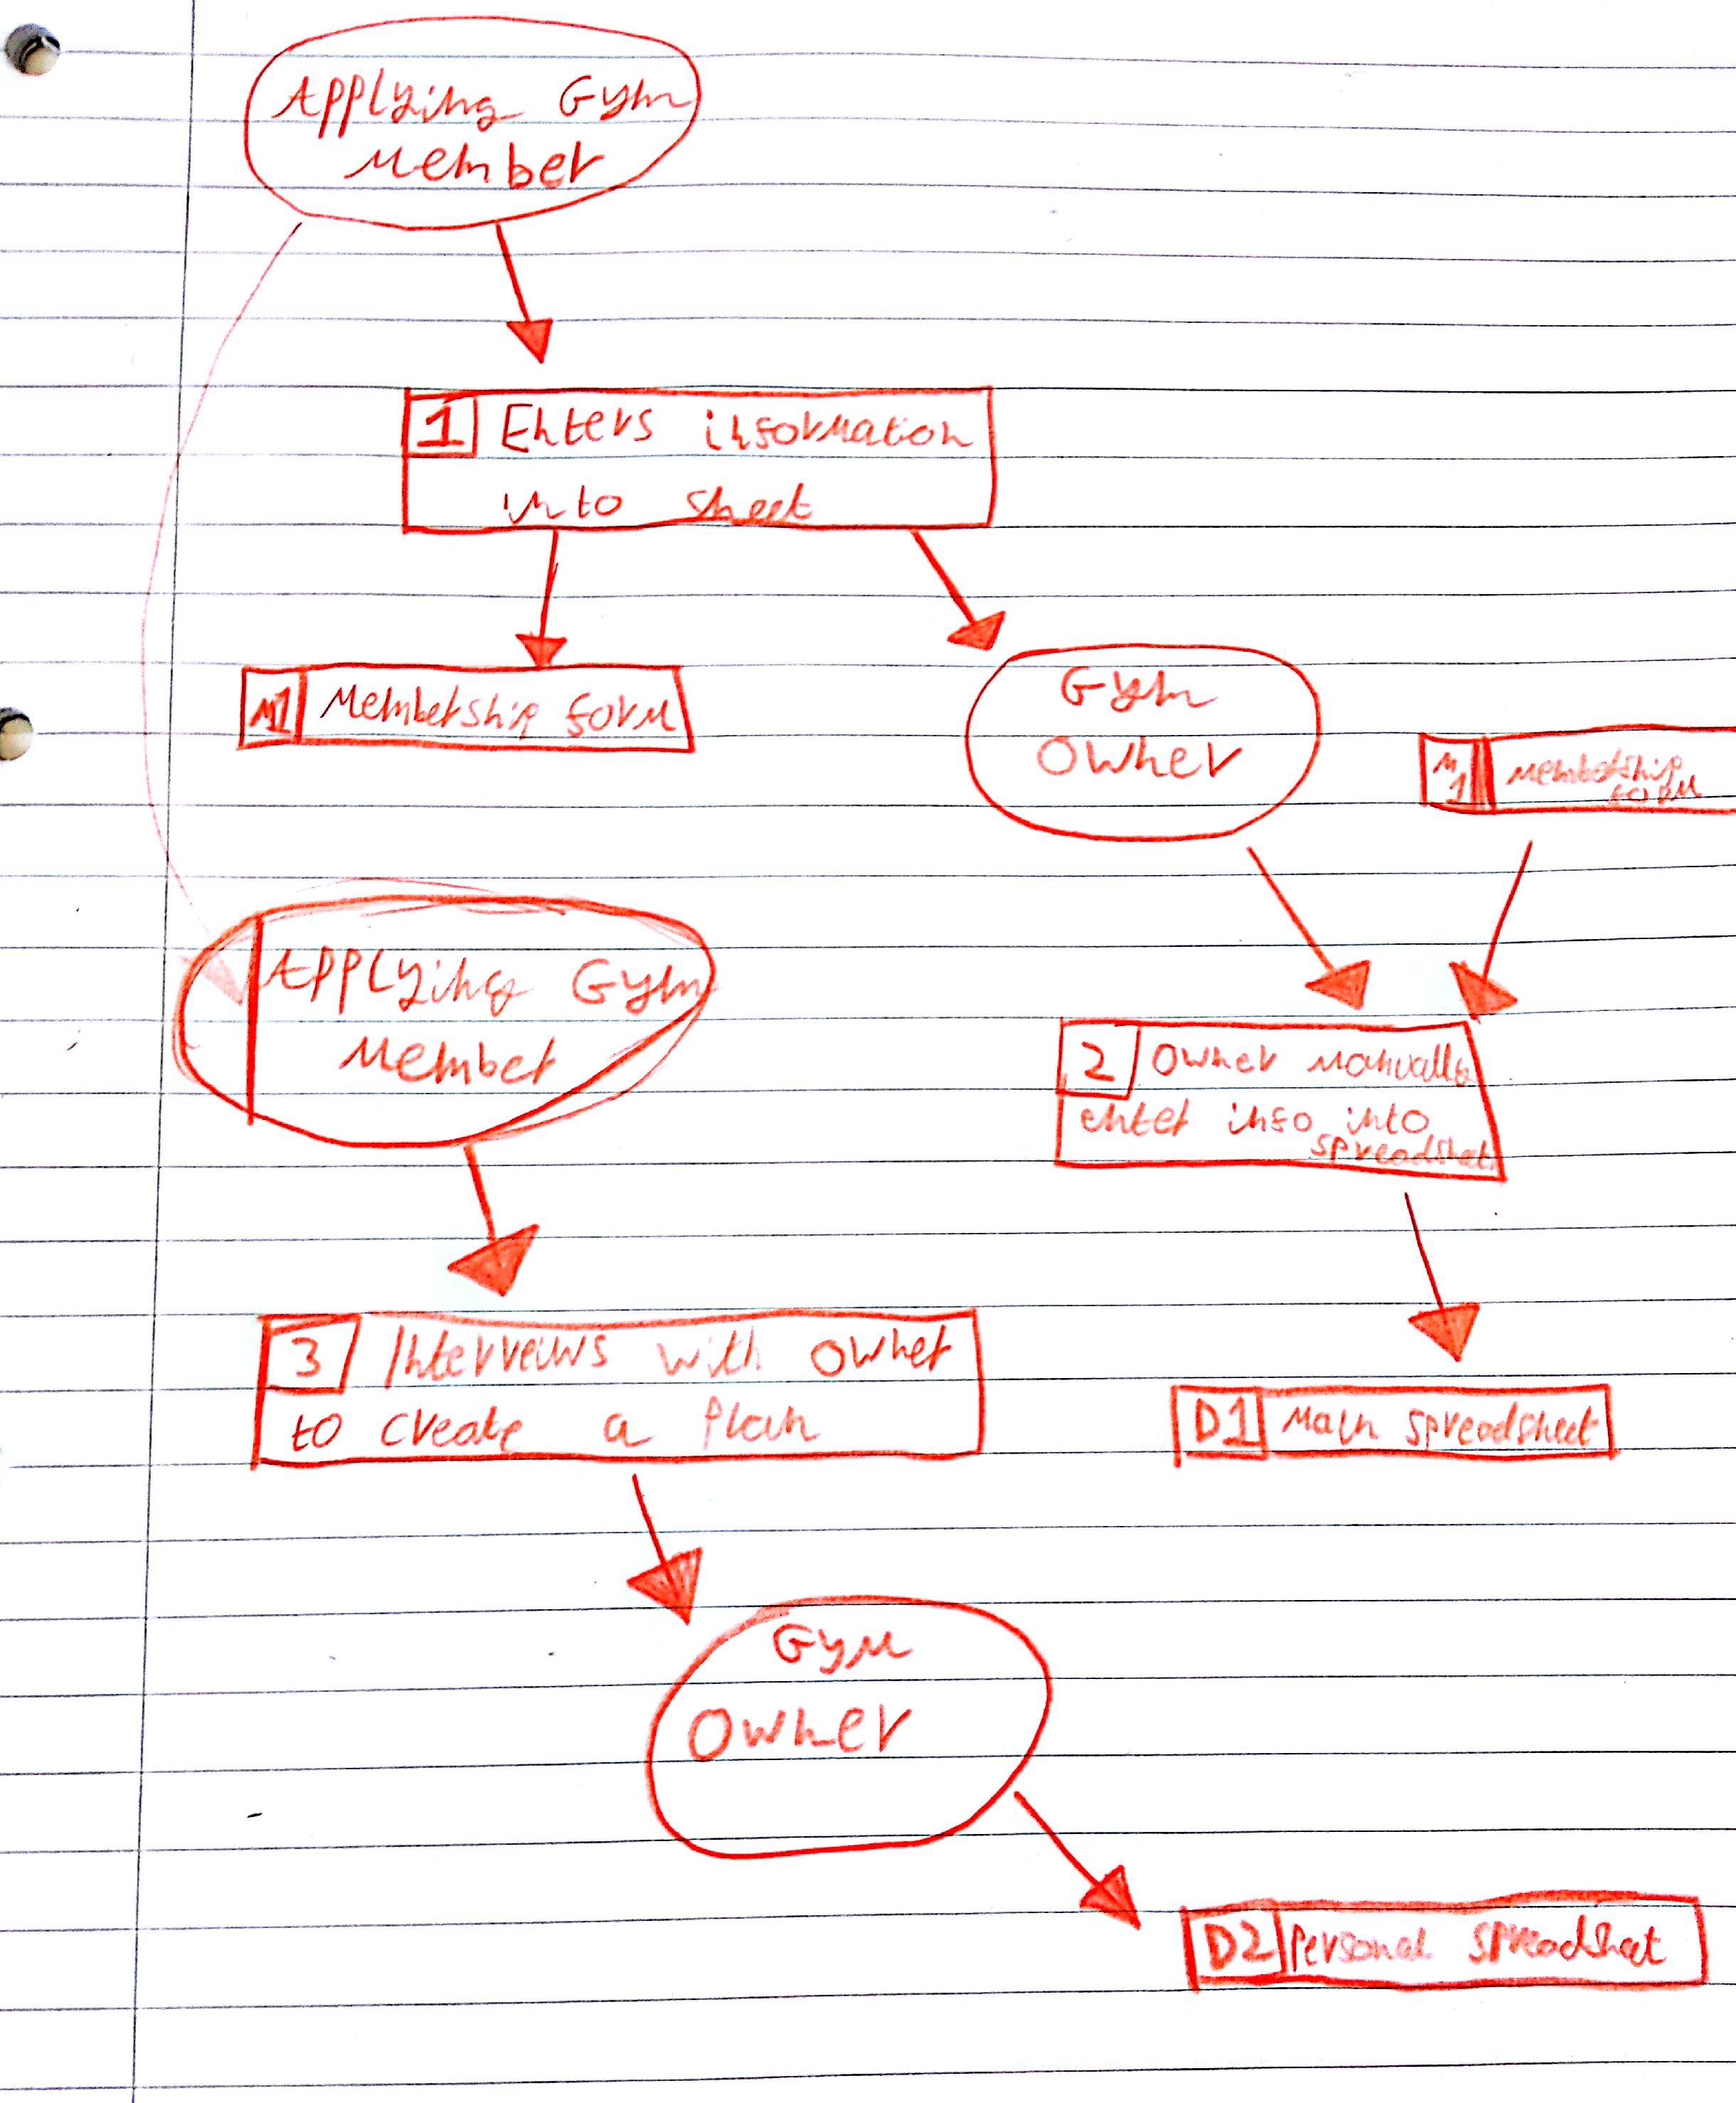 Applying Gym
Member
1 Enters information
into sheet
M1 Membership form
Gym
Owner
M
1 Membership
form
Applying Gym
Member
2 Owner manually
enter info into
spreadsheet
3 Interveiws with owner
to create a plan
D1 Main spreadsheet
Gym
Owner
D2 Personal spreadsheet